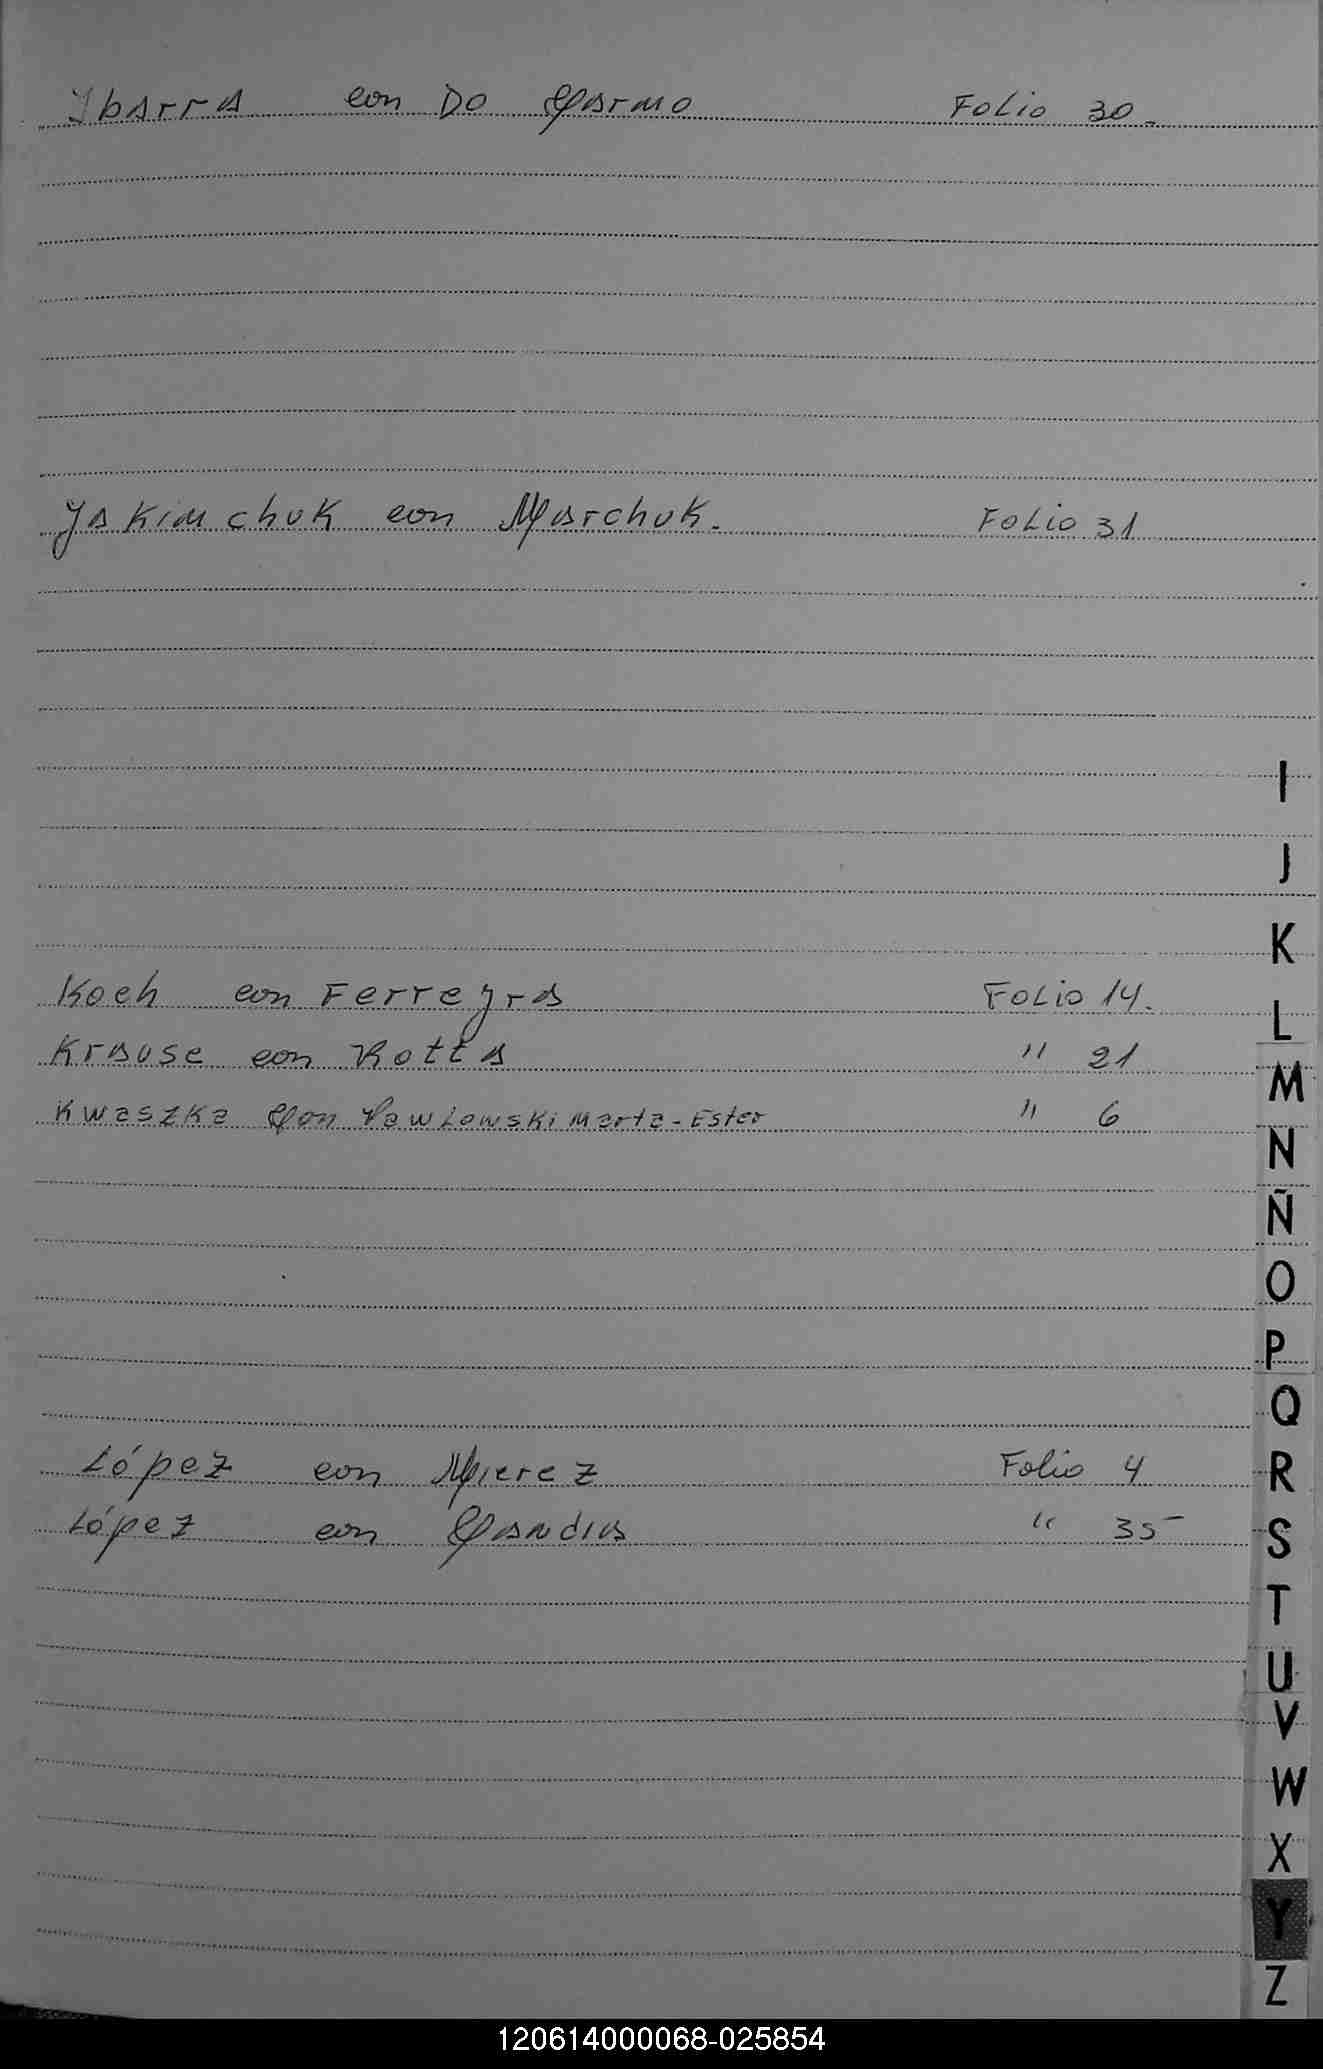 Ibarra con Do Carmo Folio 30.
Jakimchuk con Marchuk. Folio 31
I
J
K
Koch con Ferreyra Folio 14.
L
Krause con Rotta " 21
M
Kwaszka Con Pawlowski Marta-Ester " 6
N
Ñ
O
P
Q
López con Mierez Folio 4
R
López con Candia " 35
S
T
U
V
W
X
Y
Z
120614000068-025854